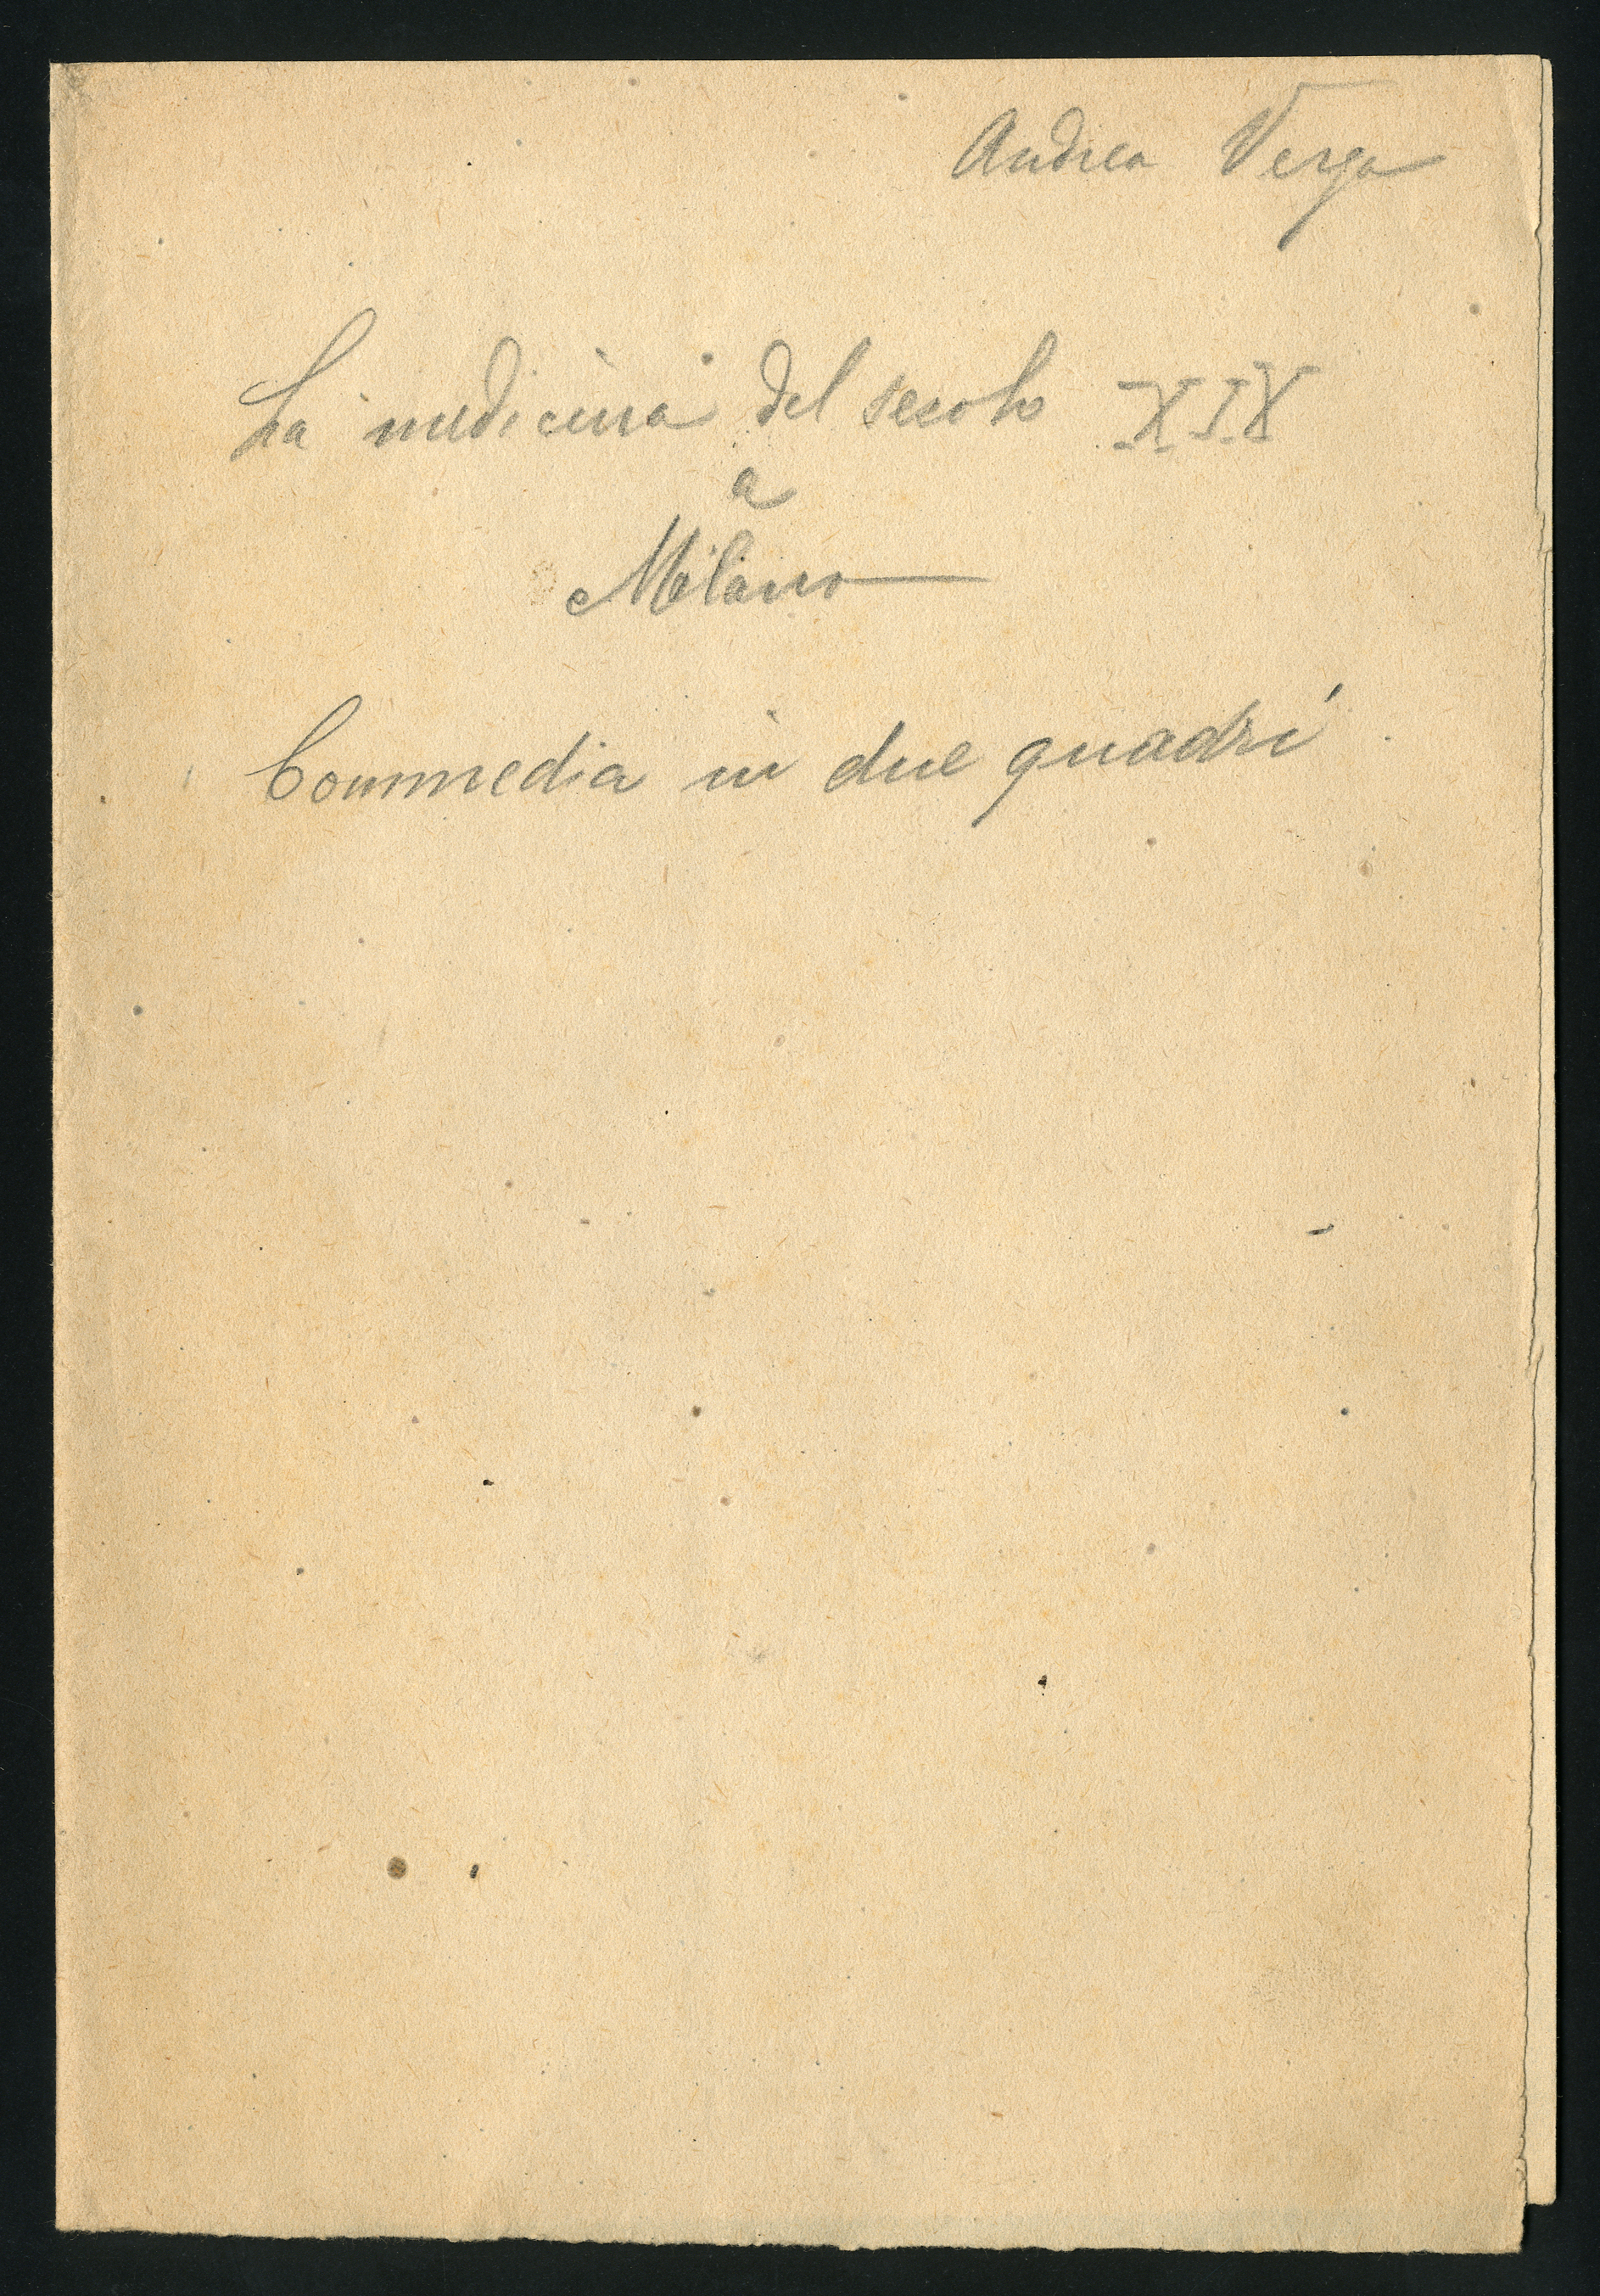 Andrea Verga
La medicina del secolo XIX
a
Milano
Commedia in due quadri